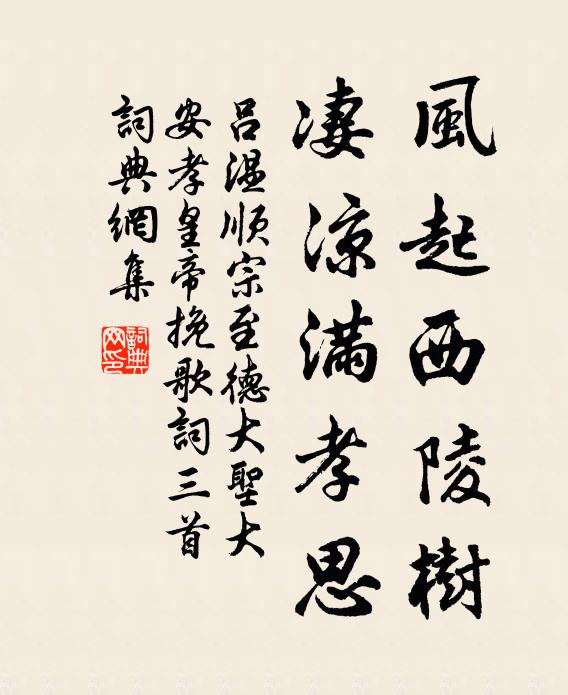 風起西陵樹
凄涼滿孝思
吕温順宗至德大聖大
安孝皇帝挽歌詞三首
詞典網集
詞典
网印